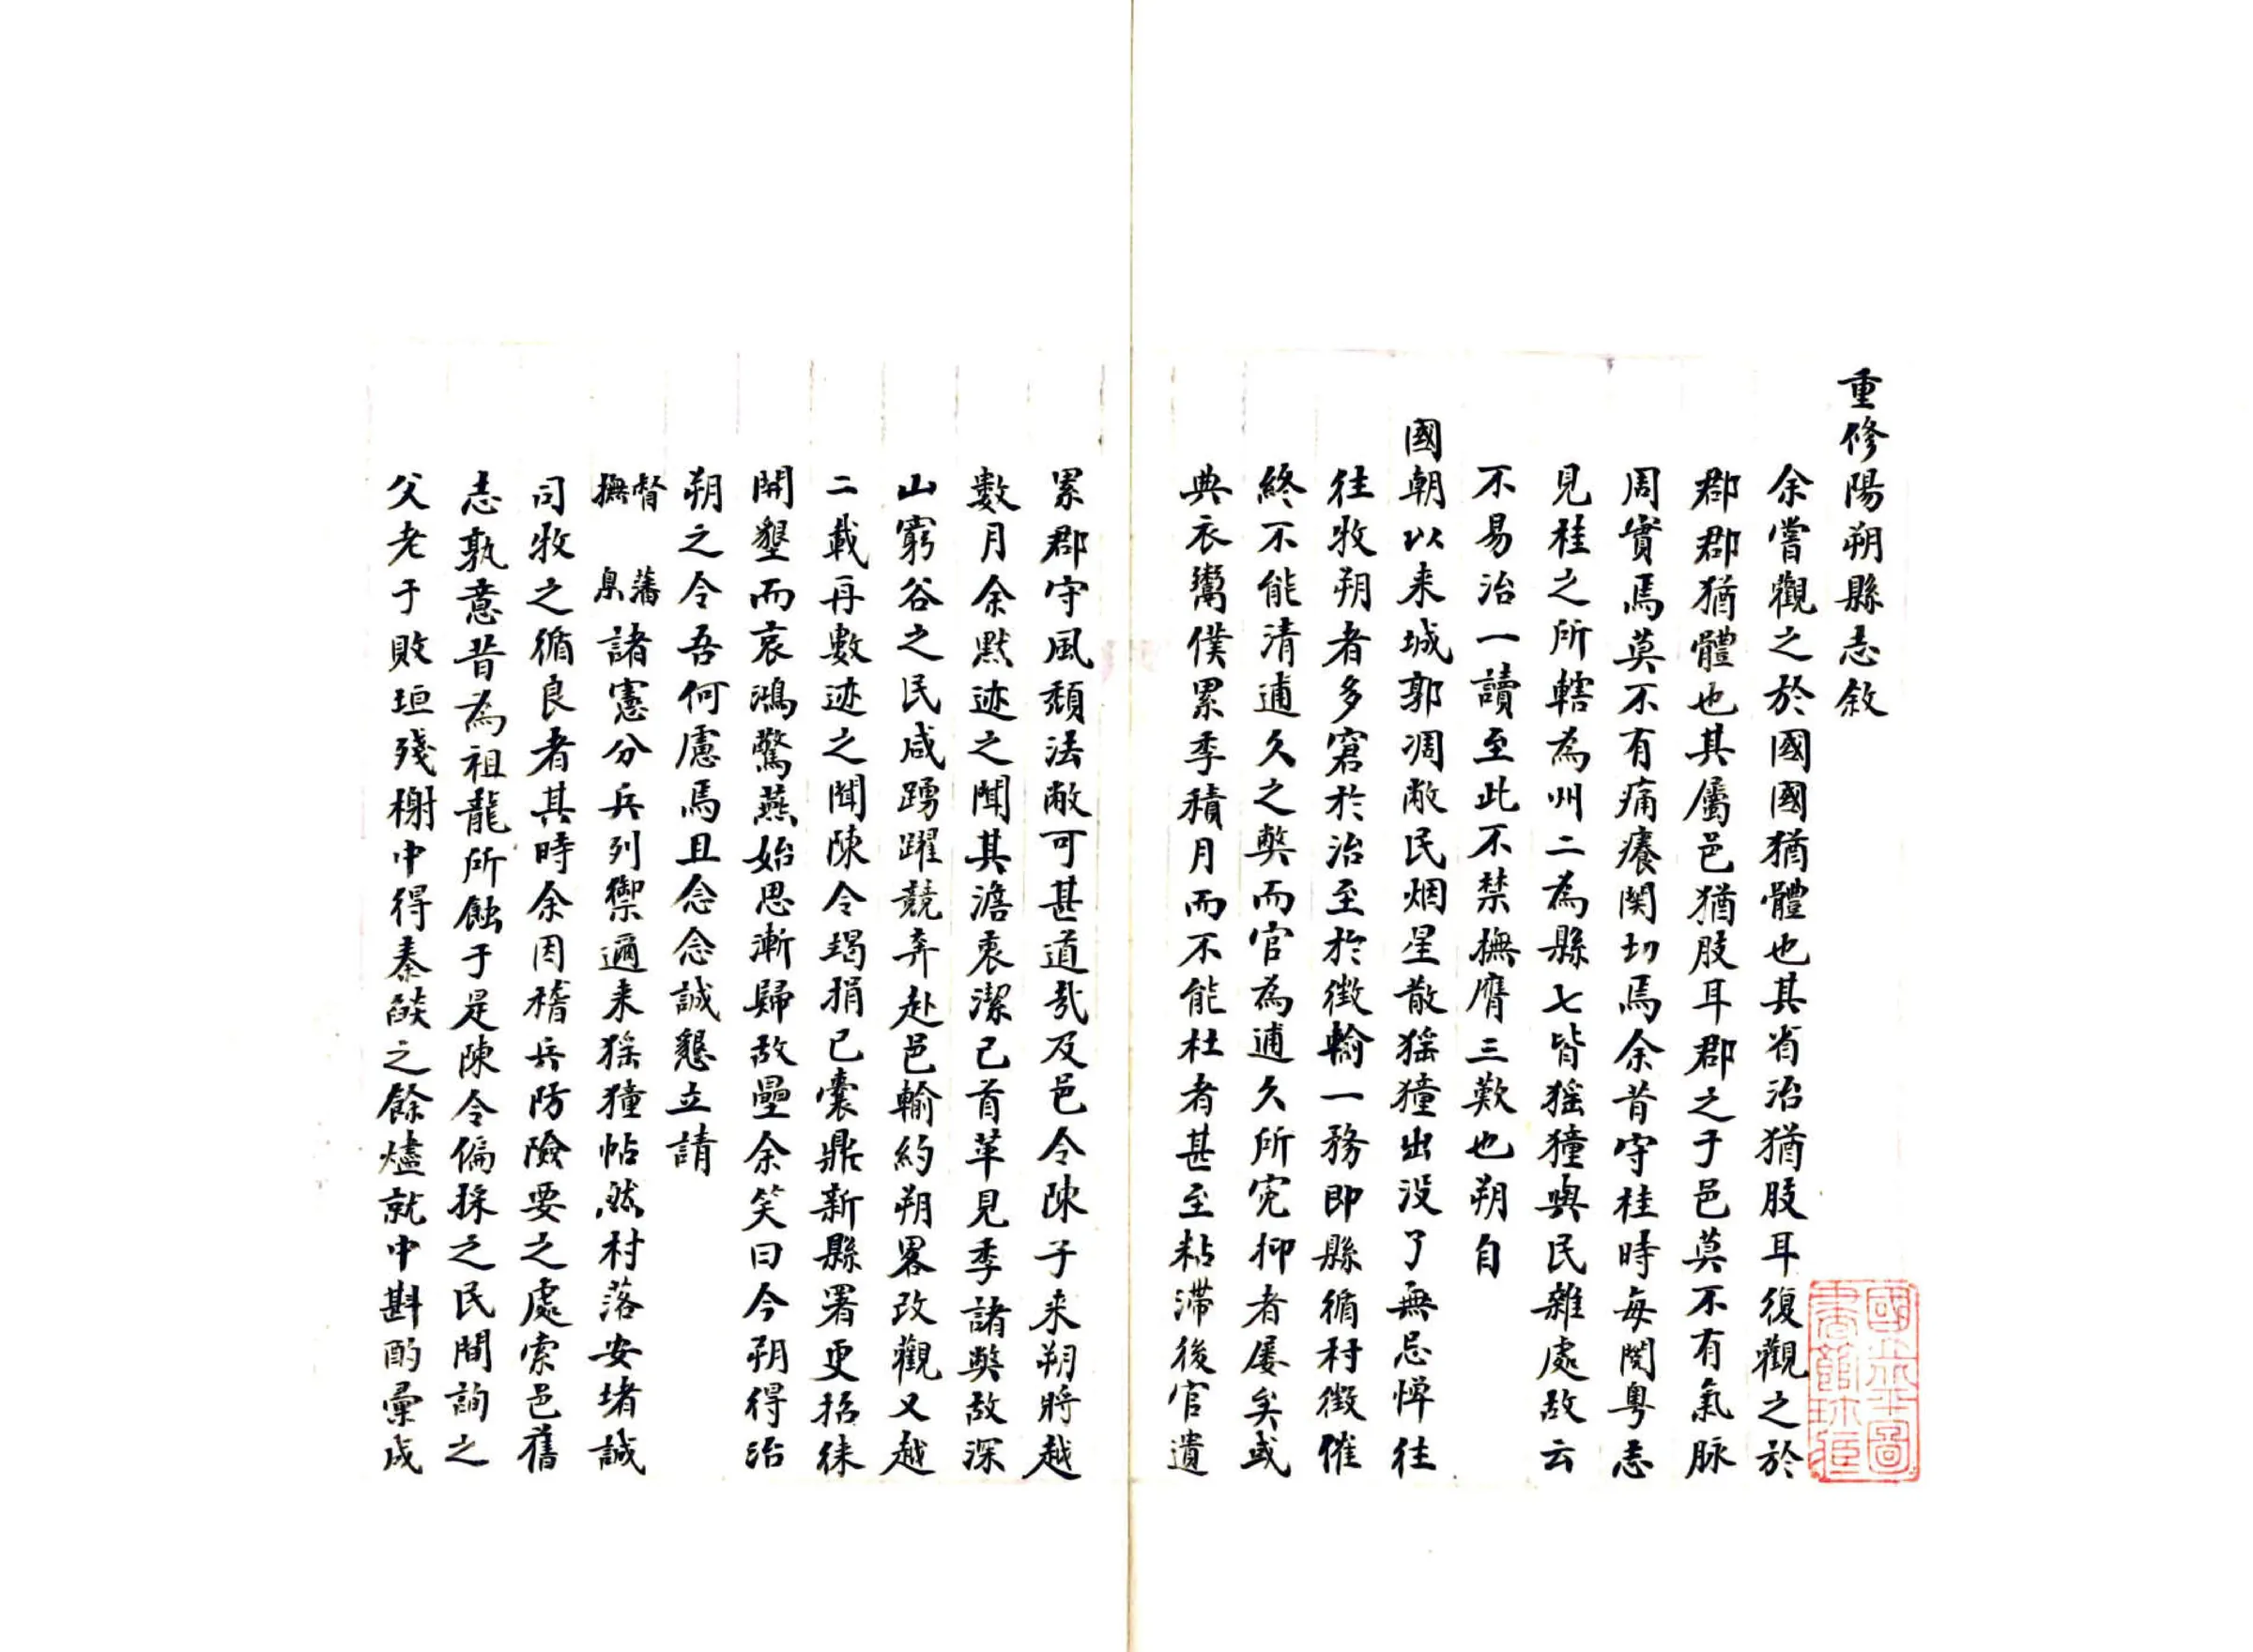 重修陽朔縣志敘
余嘗觀之於國國猶體也其省治猶肢耳復觀之於
郡郡猶體也其屬邑猶肢耳郡之于邑莫不有氣脉
周實焉莫不有痛癢関切焉余昔守桂時每閱粤志
見桂之所轄為州二為縣七皆猺獞與民雜處故云
不易治一讀至此不禁撫膺三歎也朔自
國朝以来城郭凋敝民烟星散猺獞出没了無忌惮往
往牧朔者多窘於治至於徴輸一務即縣循村徴催
終不能清逋久之獘而官為逋久所寃抑者屡矣或
典衣鬻僕累季積月而不能杜者甚至粘滞後官遺
累郡守風頹法敝可甚道哉及邑令陳子来朔將越
數月余默迹之聞其澹衷潔己首革見季諸獘故深
山窮谷之民咸踴躍競奔赴邑輸約朔畧改觀又越
二載再數迹之聞陳令竭捐已囊鼎新縣署更招徕
開墾而哀鴻驚燕始思漸歸故壘余笑曰今朔得治
朔之令吾何慮焉且念念誠懇立請
督撫藩臬諸憲分兵列禦邇来猺獞帖然村落安堵誠
司牧之循良者其時余因稽兵防險要之處索邑舊
志孰意昔為祖龍所蝕于是陳令偏採之民間詢之
父老于敗垣殘榭中得秦燄之餘燼就中斟酌彙成
國立北平圖
書館珠藏